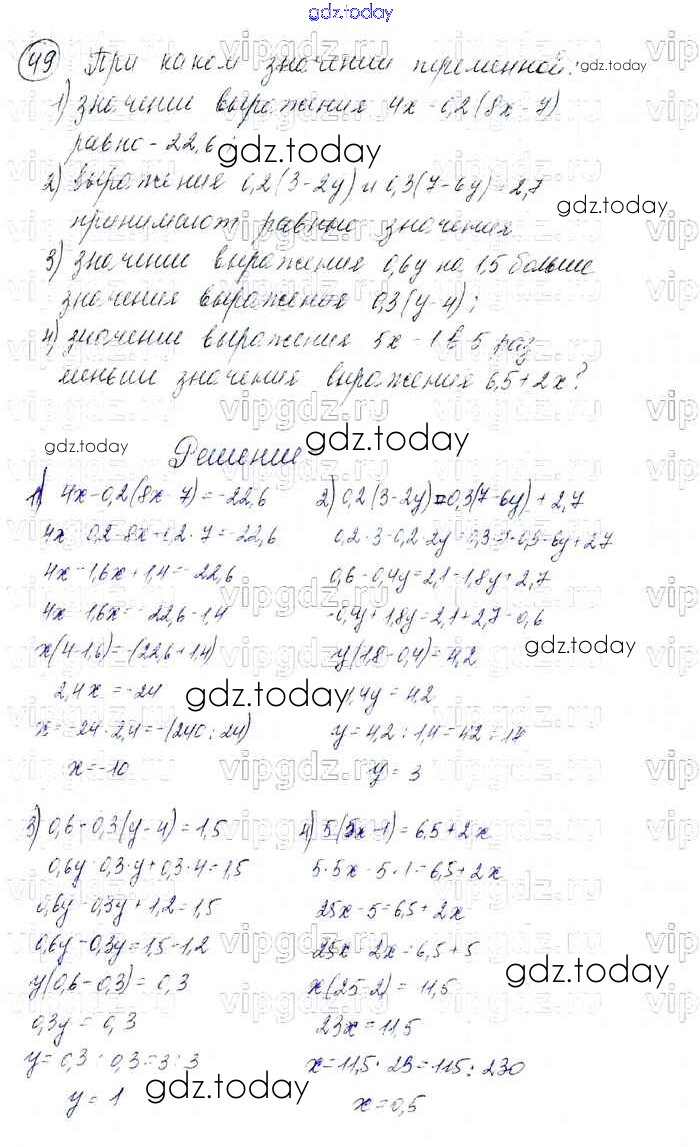 gdz.today
49 При каком значении переменной: gdz.today
1) значение выражения 4x - 0,2(8x - 7)
равно - 22,6; gdz.today
2) выражения 0,2(3-2y) и 0,3(7-6y) 2,7
принимают равные значения gdz.today
3) значение выражения 0,6y на 1,5 больше
значения выражения 0,3(y-4);
4) значение выражения 5x - 1 в 5 раз
меньше значения выражения 6,5+2x?
gdz.today Решение gdz.today
1) 4x-0,2(8x-7)=-22,6
4x-0,2·8x-0,2·7=-22,6
4x-1,6x+1,4=-22,6
4x-1,6x=-22,6-1,4
x(4-1,6)=-(22,6+1,4)
2,4x=-24
gdz.today
x=-24:2,4=-(240:24)
x=-10
2) 0,2(3-2y)=0,3(7-6y)+2,7
0,2·3-0,2·2y=0,3·7-0,3·6y+2,7
0,6-0,4y=2,1-1,8y+2,7
-0,4y+1,8y=2,1+2,7-0,6
gdz.today
y(1,8-0,4)=4,2
1,4y=4,2
y=4,2:1,4=42:14
y=3
3) 0,6-0,3(y-4)=1,5
0,6y-0,3·y+0,3·4=1,5
0,6y-0,3y+1,2=1,5
0,6y-0,3y=1,5-1,2
y(0,6-0,3)=0,3
0,3y=0,3
y=0,3:0,3=3:3
y=1
gdz.today
4) 5(5x-1)=6,5+2x
5·5x-5·1=6,5+2x
25x-5=6,5+2x
25x-2x=6,5+5
gdz.today
x(25-2)=11,5
23x=11,5
x=11,5:23=115:230
x=0,5
vipgdz.ru